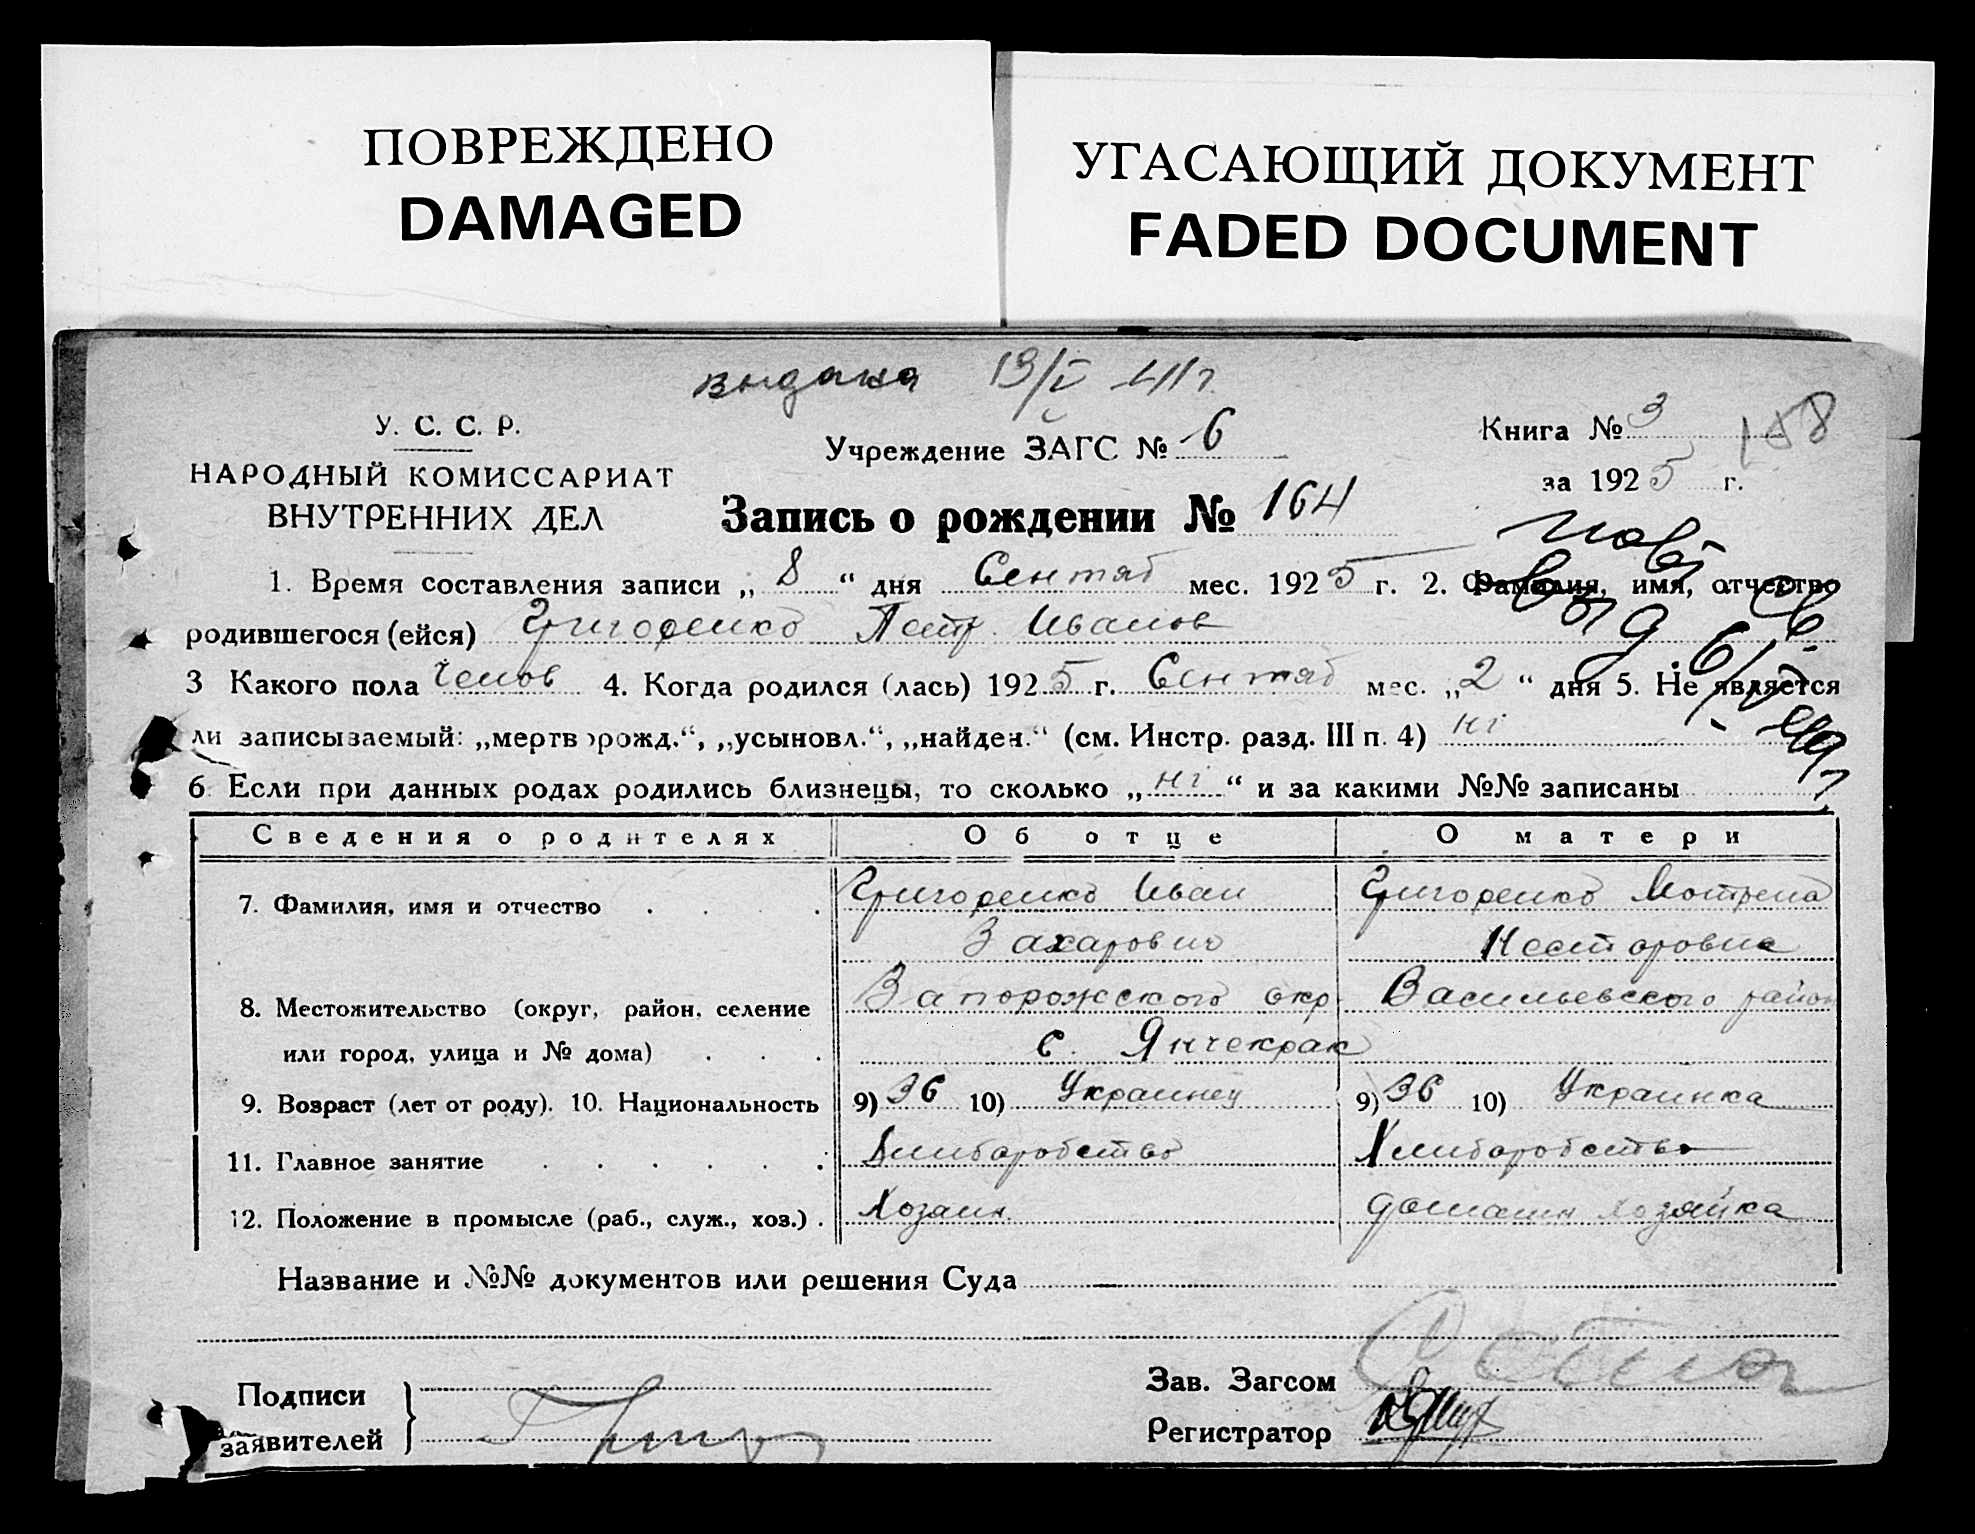 ПОВРЕЖДЕНО
DAMAGED
УГАСАЮЩИЙ ДОКУМЕНТ
FADED DOCUMENT
выдана 13/V 41 г.
У. С. С. Р.
НАРОДНЫЙ КОМИССАРИАТ
ВНУТРЕННИХ ДЕЛ
Учреждение ЗАГС № 6
Запись о рождении № 164
Книга № 3
158
за 1925 г.
1. Время составления записи „ 8 “ дня Сентяб мес. 1925 г. 2. Фамилия, имя, отчество
родившегося (ейся) Григоренко Петр Иванов
3 Какого пола Челов 4. Когда родился (лась) 1925 г. Сентяб мес. „ 2 “ дня 5. Не является
ли записываемый: „мертворожд.“, „усыновл.“, „найден.“ (см. Инстр. разд. III п. 4) ні
6. Если при данных родах родились близнецы, то сколько „ ні “ и за какими №№ записаны
Сведения о родителях Об отце О матери
7. Фамилия, имя и отчество Григоренко Иван Григоренко Мотрена
Захарович Несторовна
8. Местожительство (округ, район, селение Запорожского окр. Васильевского район
или город, улица и № дома) с. Янчекрак
9. Возраст (лет от роду). 10. Национальность 9) 36 10) Украинец 9) 36 10) Украинка
11. Главное занятие Хлибаробство Хлибаробство
12. Положение в промысле (раб., служ., хоз.) Хозаин домашн хозяйка
Название и №№ документов или решения Суда
Подписи
заявителей
Зав. Загсом
Регистратор